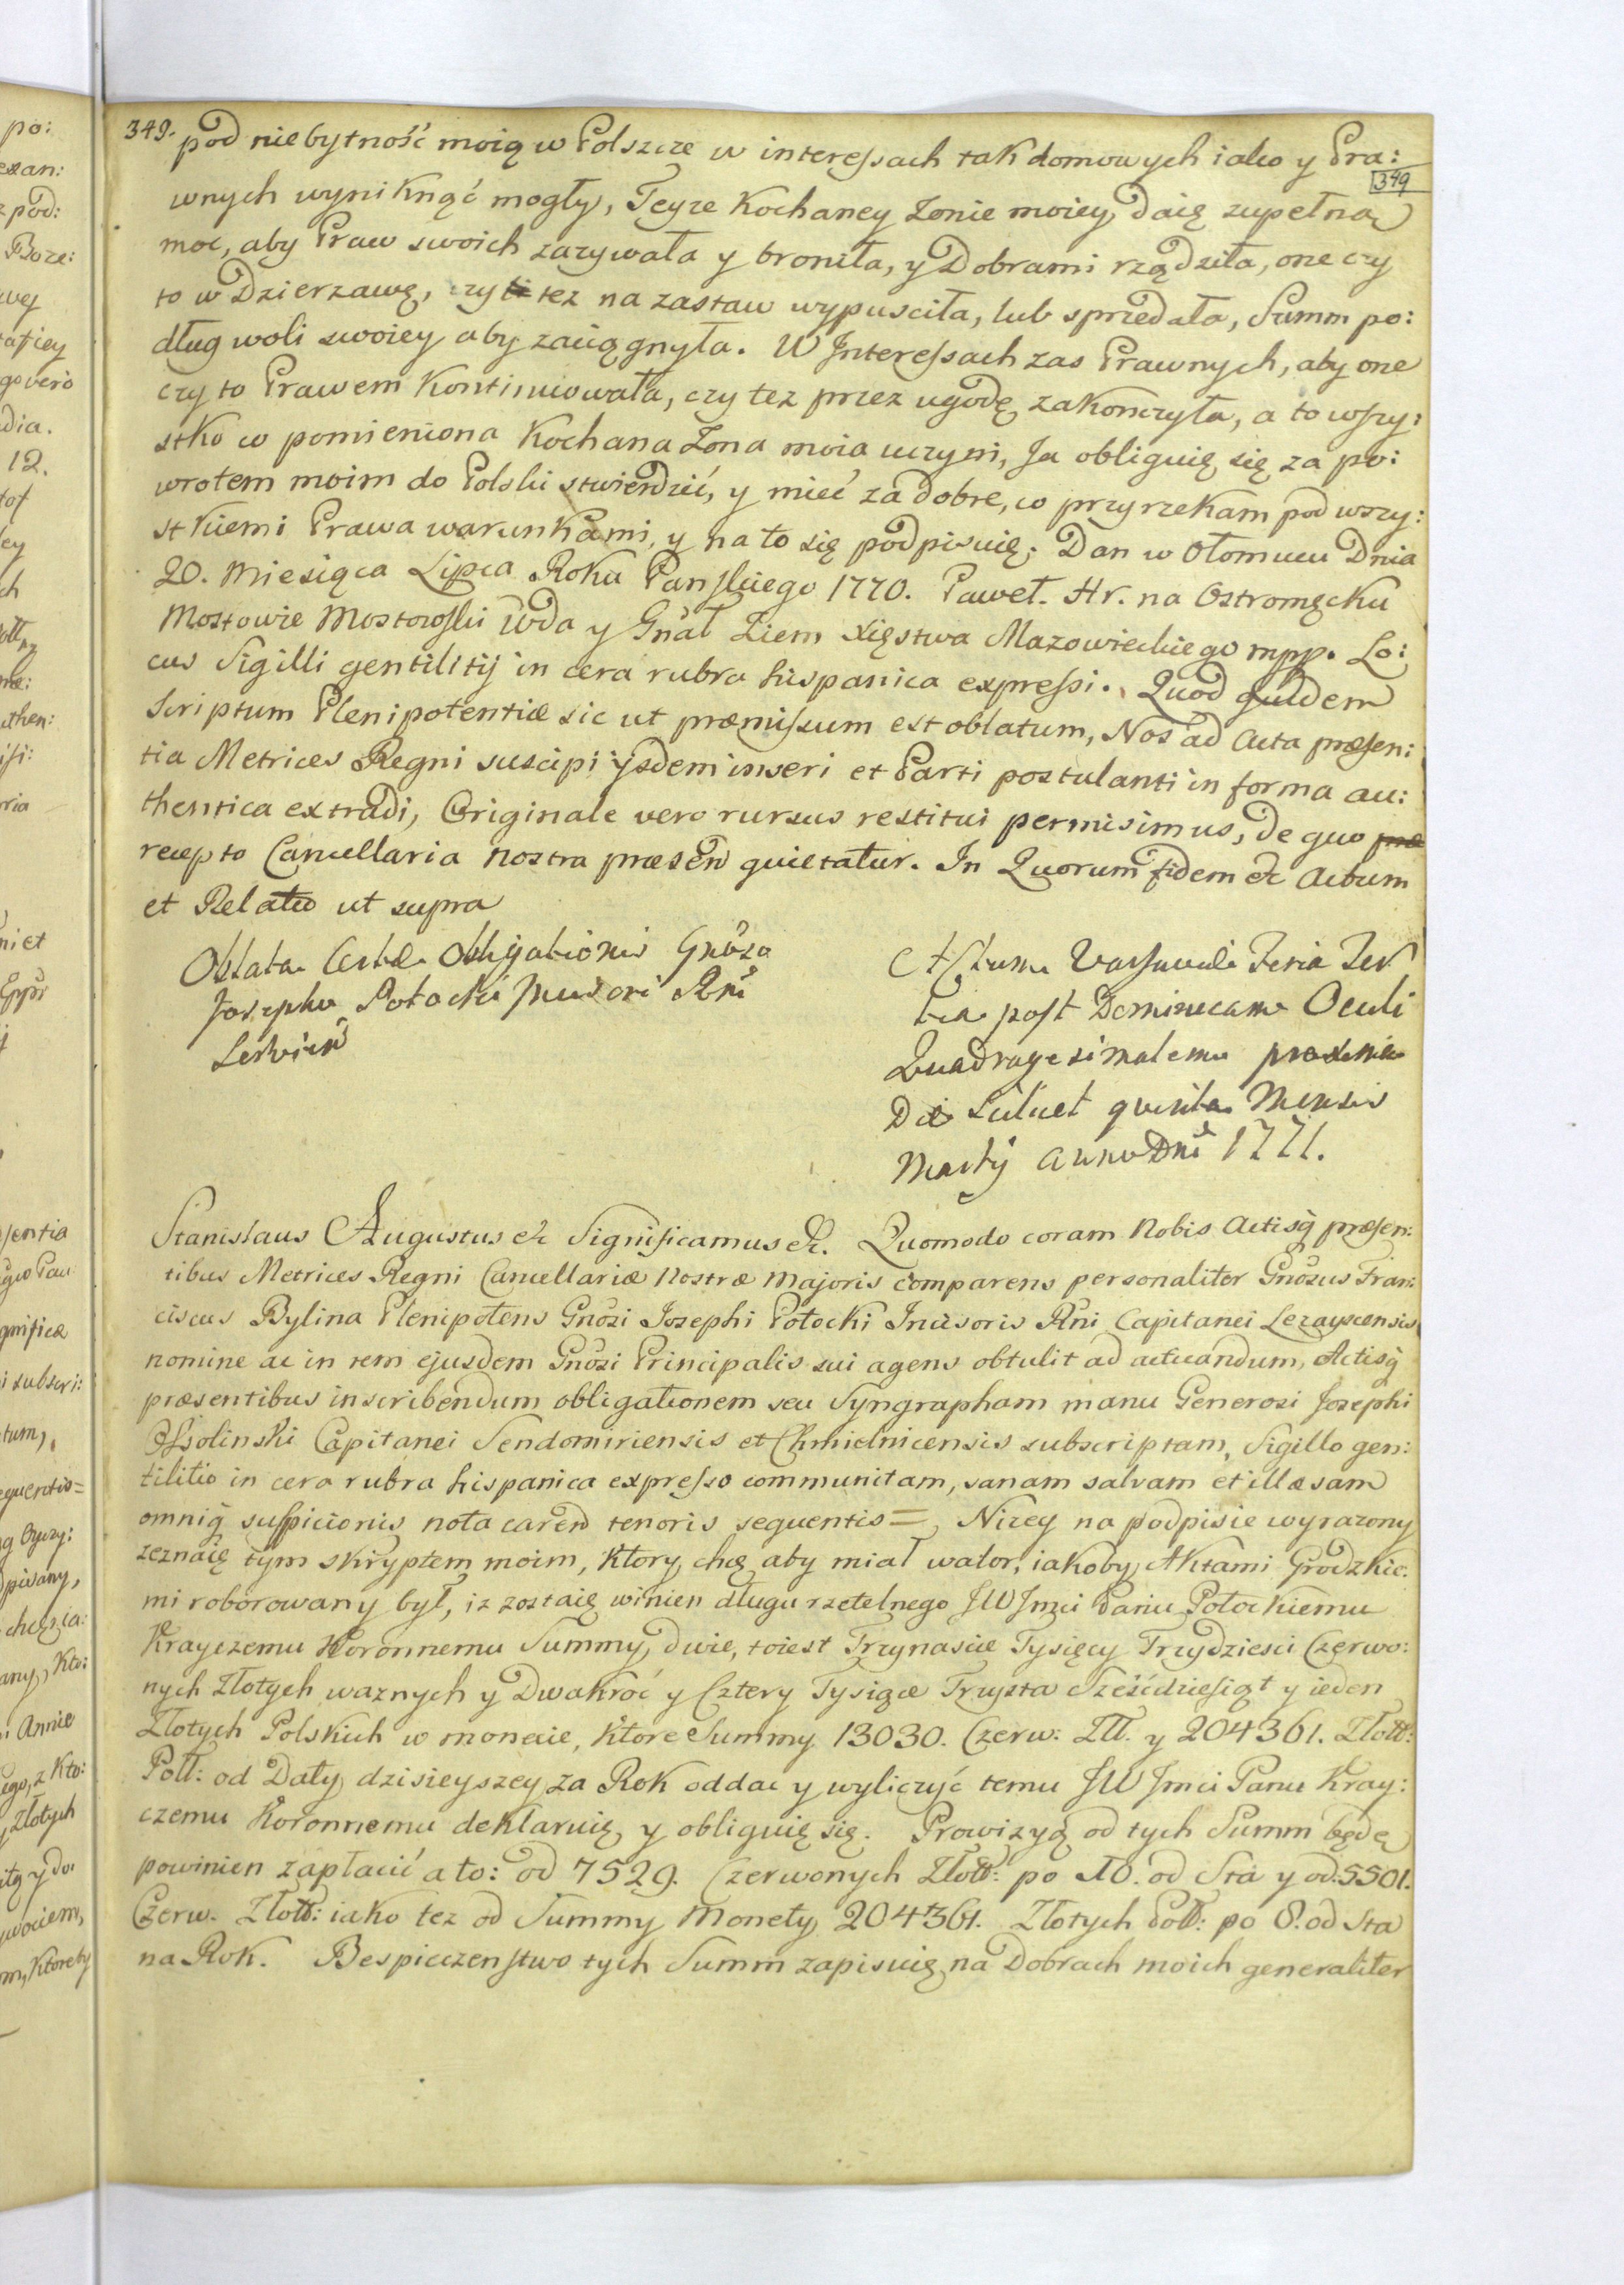 349. pod niebytność moią w Polszcze w interessach tak domowych iako y Pra:
349
wnych wyniknąć mogły, Teyze Kochaney Zonie moiey, daię zupełną
moc, aby Praw swoich zazywała y broniła, y Dobrami rządziła, one czy
to w Dzierzawę, czyli tez na zastaw wypusciła, lub sprzedała, Summ po:
dług woli swoiey aby zaciągnyła. W Interessach zas Prawnych, aby one
czy to Prawem kontinuowała, czy tez przez ugodę zakonczyła, a to wszy:
stko co pomieniona Kochana Zona moia uczyni, Ja obliguię się za po:
wrotem moim do Polski stwierdzić, y mieć za dobre, co przyrzekam pod wszy:
stkiemi Prawa warunkami, y na to się podpisuię. Dan w Ołomucu Dnia
20. Miesiąca Lipca Roku Panskiego 1770. Paweł. Hr. na Ostromęcku
Mostowie Mostowski Wda y Gnał Ziem Xięstwa Mazowieckiego mpp. Lo:
cus Sigilli gentilitij in cera rubra hispanica expressi. Quod quidem
Scriptum Plenipotentiæ sic ut præmissum est oblatum, Nos ad Acta præsen:
tia Metrices Regni suscipi ijsdem inseri et Parti postulanti in forma au:
thentica extradi, Originale vero rursus restitui permisimus, de quo præ
recepto Cancellaria nostra præsen quietatur. In Quorum fidem &c Actum
et Relatio ut supra
Oblata Certæ Obligationis Gnoso
Josepho Potocki Incisori Rni
Servien
Actum Varsaviæ Feria Ter
tia post Dominicam Oculi
Quadragesimalem proxima
Die Scilicet quinta Mensis
Martij Anno Dni 1771.
Stanislaus Augustus &c Significamus &c. Quomodo coram Nobis Actisq præsen:
tibus Metrices Regni Cancellariæ Nostræ Majoris comparens personaliter Gnosus Fran:
ciscus Bylina Plenipotens Gnosi Josephi Potocki Incisoris Rni Capitanei Lezayscensis
nomine ac in rem ejusdem Gnosi Principalis sui agens obtulit ad acticandum, Actisq
præsentibus inscribendum obligationem seu Syngrapham manu Generosi Josephi
Ossolinski Capitanei Sendomiriensis et Chmielnicensis subscriptam, Sigillo gen:
tilitio in cera rubra hispanica expresso communitam, sanam salvam et illæsam
omniq suspicionis nota caren tenoris sequentis = Nizey na podpisie wyrazony
zeznaię tym skryptem moim, ktory chcę aby miał walor, iakoby Aktami Grodzkie:
mi roborowany był, iz zostaię winien długu rzetelnego JW Jmci Panu Potockiemu
Krayczemu Koronnemu Summy, dwie, toiest Trzynascie Tysięcy Trzydziesci Czerwo:
nych Złotych waznych y Dwakroć y Cztery Tysiące Trzysta Sześćdziesiąt y ieden
Złotych Polskich w monecie, ktore Summy 13030. Czerw: Złł. y 204361. Złott:
Poll: od Daty dzisieyszey za Rok oddac y wyliczyć temu JW Jmci Panu Kray:
czemu Koronnemu deklaruię, y obliguię się. Prowizyą od tych Summ będę
powinien zapłacić a to: od 7529. Czerwonych Złott: po 10. od Sta y od: 5501.
Czerw. Złott: iako tez od Summy Monety 204361. Złotych Poll: po 8. od Sta
na Rok. Bespieczenstwo tych Summ zapisuię na Dobrach moich generaliter